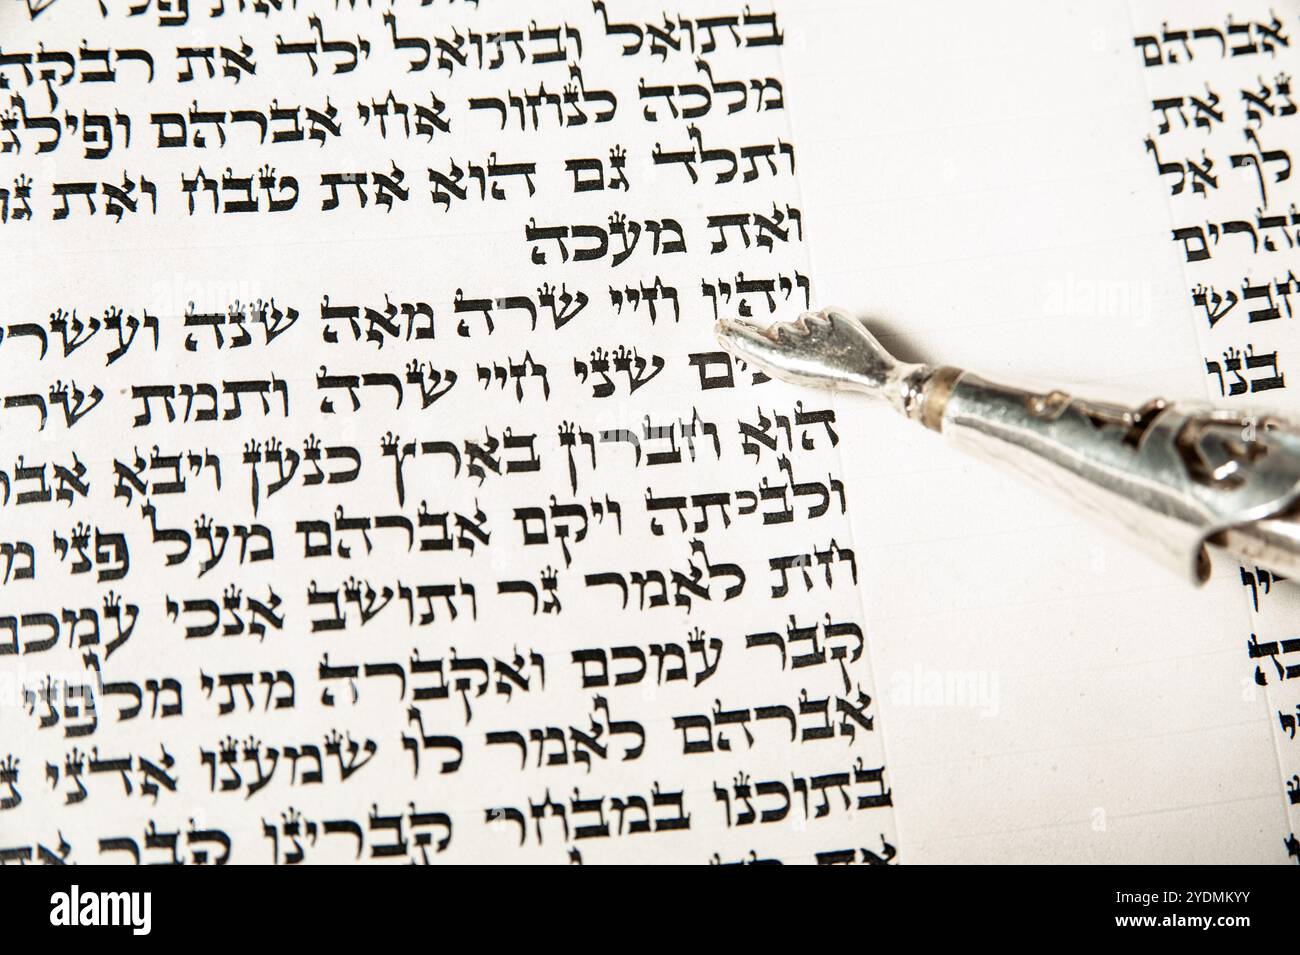 אברהם
נא את
לך אל
ההרים
חבש
בנו
בתואל ובתואל ילד את רבקה
מלכה לנחור אחי אברהם ופילג
ותלד גם הוא את טבח ואת
ואת מעכה
ויהיו חיי שרה מאה שנה ועשר
שני חיי שרה ותמת שר
הוא חברון בארץ כנען ויבא אבר
ולבכתה ויקם אברהם מעל פני מ
חת לאמר גר ותושב אנכי עמכם
קבר עמכם ואקברה מתי מלפני
אברהם לאמר לו שמענו אדני
בתוכנו במבחר קברינו קבר
alamy
Image ID: 2YDMKYY
www.alamy.com